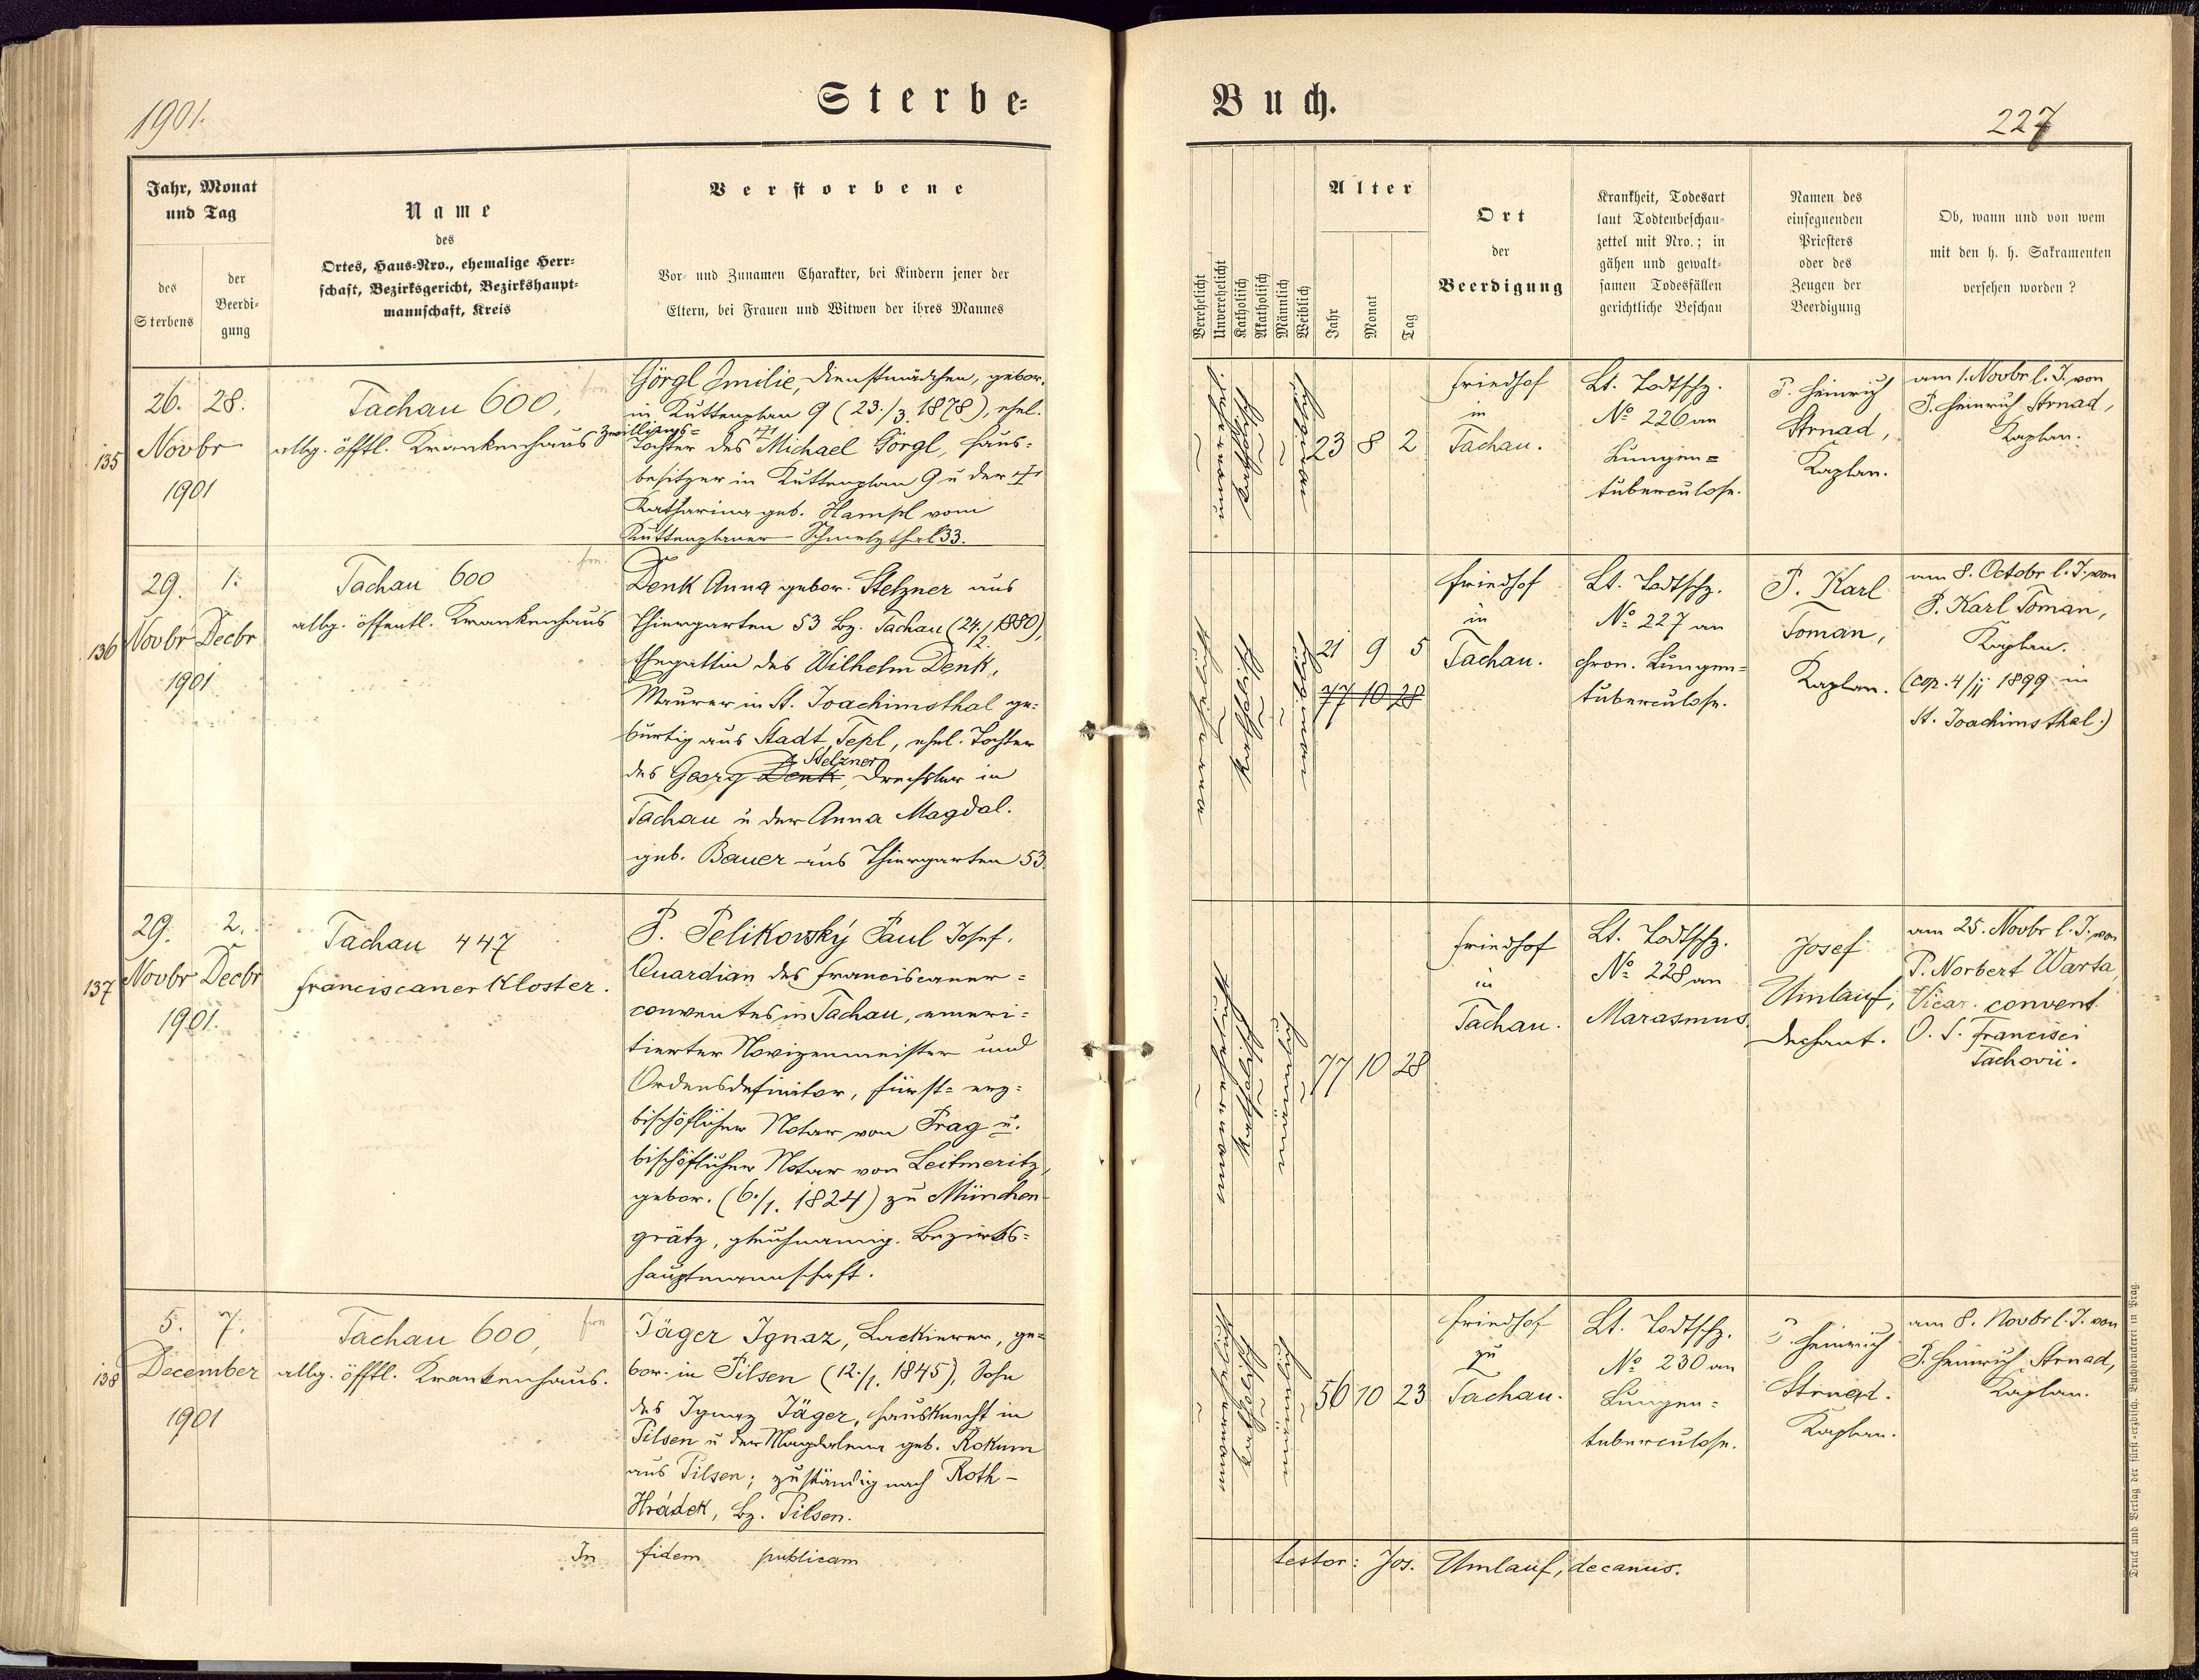 1901.
Sterbe-
Buch.
227
Jahr, Monat
und Tag
des
Sterbens
der
Beerdi-
gung
Name
des
Ortes, Haus-Nro., ehemalige Herr-
schaft, Bezirksgericht, Bezirkshaupt-
mannschaft, Kreis
Verstorbene
Vor- und Zunamen Charakter, bei Kindern jener der
Eltern, bei Frauen und Witwen der ihres Mannes
Verehelicht
Unverehelicht
Katholisch
Akatholisch
Männlich
Weiblich
Alter
Jahr
Monat
Tag
Ort
der
Beerdigung
Krankheit, Todesart
laut Todtenbeschau-
zettel mit Nro.; in
gähen und gewalt-
samen Todesfällen
gerichtliche Beschau
Namen des
einsegnenden
Priesters
oder des
Zeugen der
Beerdigung
Ob, wann und von wem
mit den h. h. Sakramenten
versehen worden?
135
26. 28.
Novbr
1901
Tachau 600,
allg. öfftl. Krankenhaus
Görgl Emilie, Dienstmädchen, gebor.
in Kuttenplan 9 (23./3. 1878), ehel.
Zwillings=
Tochter des † Michael Görgl, Haus=
besitzer in Kuttenplan 9 u der †
Katharina geb. Hampl vom
Kuttenplaner Schmelzthal 33.
23 8 2
Friedhof
in
Tachau.
Lt. Todtschz.
No 226 an
Lungen=
tuberculose.
P. Heinrich
Strnad,
Kaplan.
am 1. Novbr l. J. von
P. Heinrich Strnad,
Kaplan.
136
29. 1.
Novbr Decbr
1901
Tachau 600
allg. öffentl. Krankenhaus
Denk Anna gebor. Stelzner aus
Thiergarten 53 Bz. Tachau (24./2. 1880),
Ehegattin des Wilhelm Denk,
Maurer in St. Joachimsthal ge=
bürtig aus Stadt Tepl, ehel. Tochter
Stelzner
des Georg Denk, Drechsler in
Tachau u der Anna Magdal.
geb. Bauer aus Thiergarten 53.
21 9 5
77 10 28
Friedhof
in
Tachau.
Lt. Todtschz.
No 227 an
chron. Lungen=
tuberculose.
P. Karl
Toman,
Kaplan.
am 8. Octobr l. J. von
P. Karl Toman,
Kaplan.
(cop. 4/ii 1899 in
St. Joachimsthal.)
137
29. 2.
Novbr Decbr
1901.
Tachau 447
Franciscaner Kloster.
P. Pelikovský Paul Josef.
Quardian des Franciscaner=
conventes in Tachau, emeri=
tierter Novizenmeister und
Ordensdefinitor, fürst= erz=
bischöflicher Notar von Prag u.
bischöflicher Notar von Leitmeritz,
gebor. (6./1. 1824) zu München-
grätz, gleichnamig. Bezirks=
hauptmannschaft.
77 10 28
Friedhof
in
Tachau.
Lt. Todtschz.
No 228 an
Marasmus.
Josef
Umlauf,
Dechant.
am 25. Novbr l. J. von
P. Norbert Warta,
Vicar. convent
O. S. Francisci
Tachovii.
138
5. 7.
December
1901
Tachau 600,
allg. öfftl. Krankenhaus.
Jäger Ignaz, Lackierer, ge=
bor. in Pilsen (12./1. 1845), Sohn
des Ignaz Jäger, Hausknecht in
Pilsen u der Magdalena geb. Rokum
aus Pilsen; zuständig nach Roth-
Hrádek, Bz. Pilsen.
56 10 23
Friedhof
zu
Tachau.
Lt. Todtschz.
No 230 an
Lungen=
tuberculose.
P. Heinrich
Strnad.
Kaplan.
am 8. Novbr l. J. von
P. Heinrich Strnad,
Kaplan.
In fidem publicam
testor: Jos. Umlauf, decanus.
Druck und Verlag der fürst-erzbisch. Buchdruckerei in Prag.